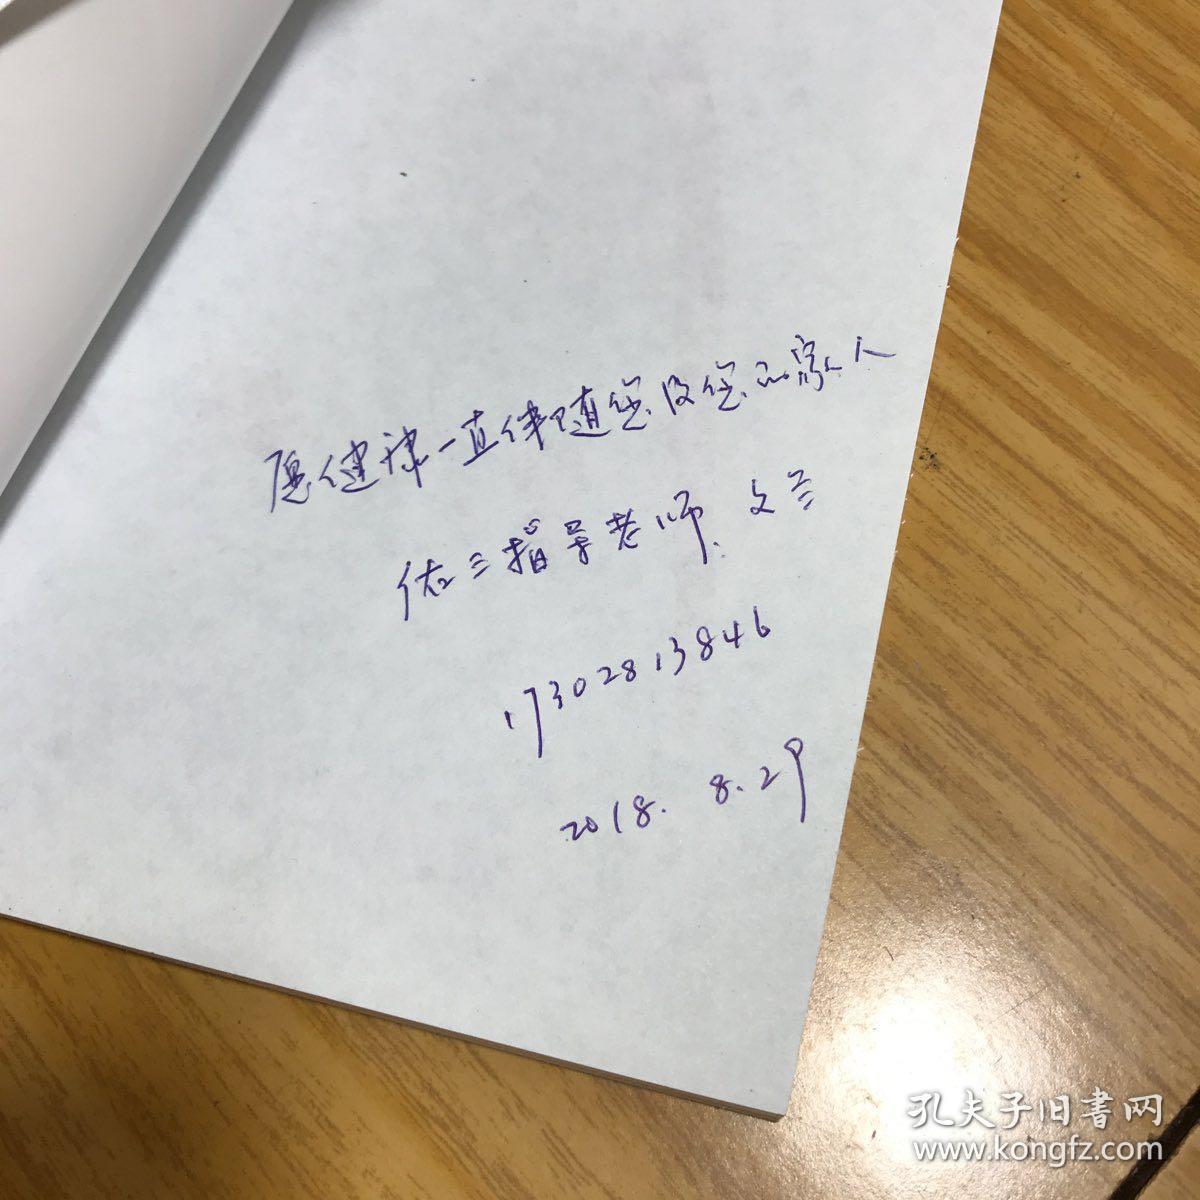 愿健康一直伴随您及您的家人
佐三指导老师 文兰
17302813846
2018. 8.29
孔夫子旧書网
www.kongfz.com